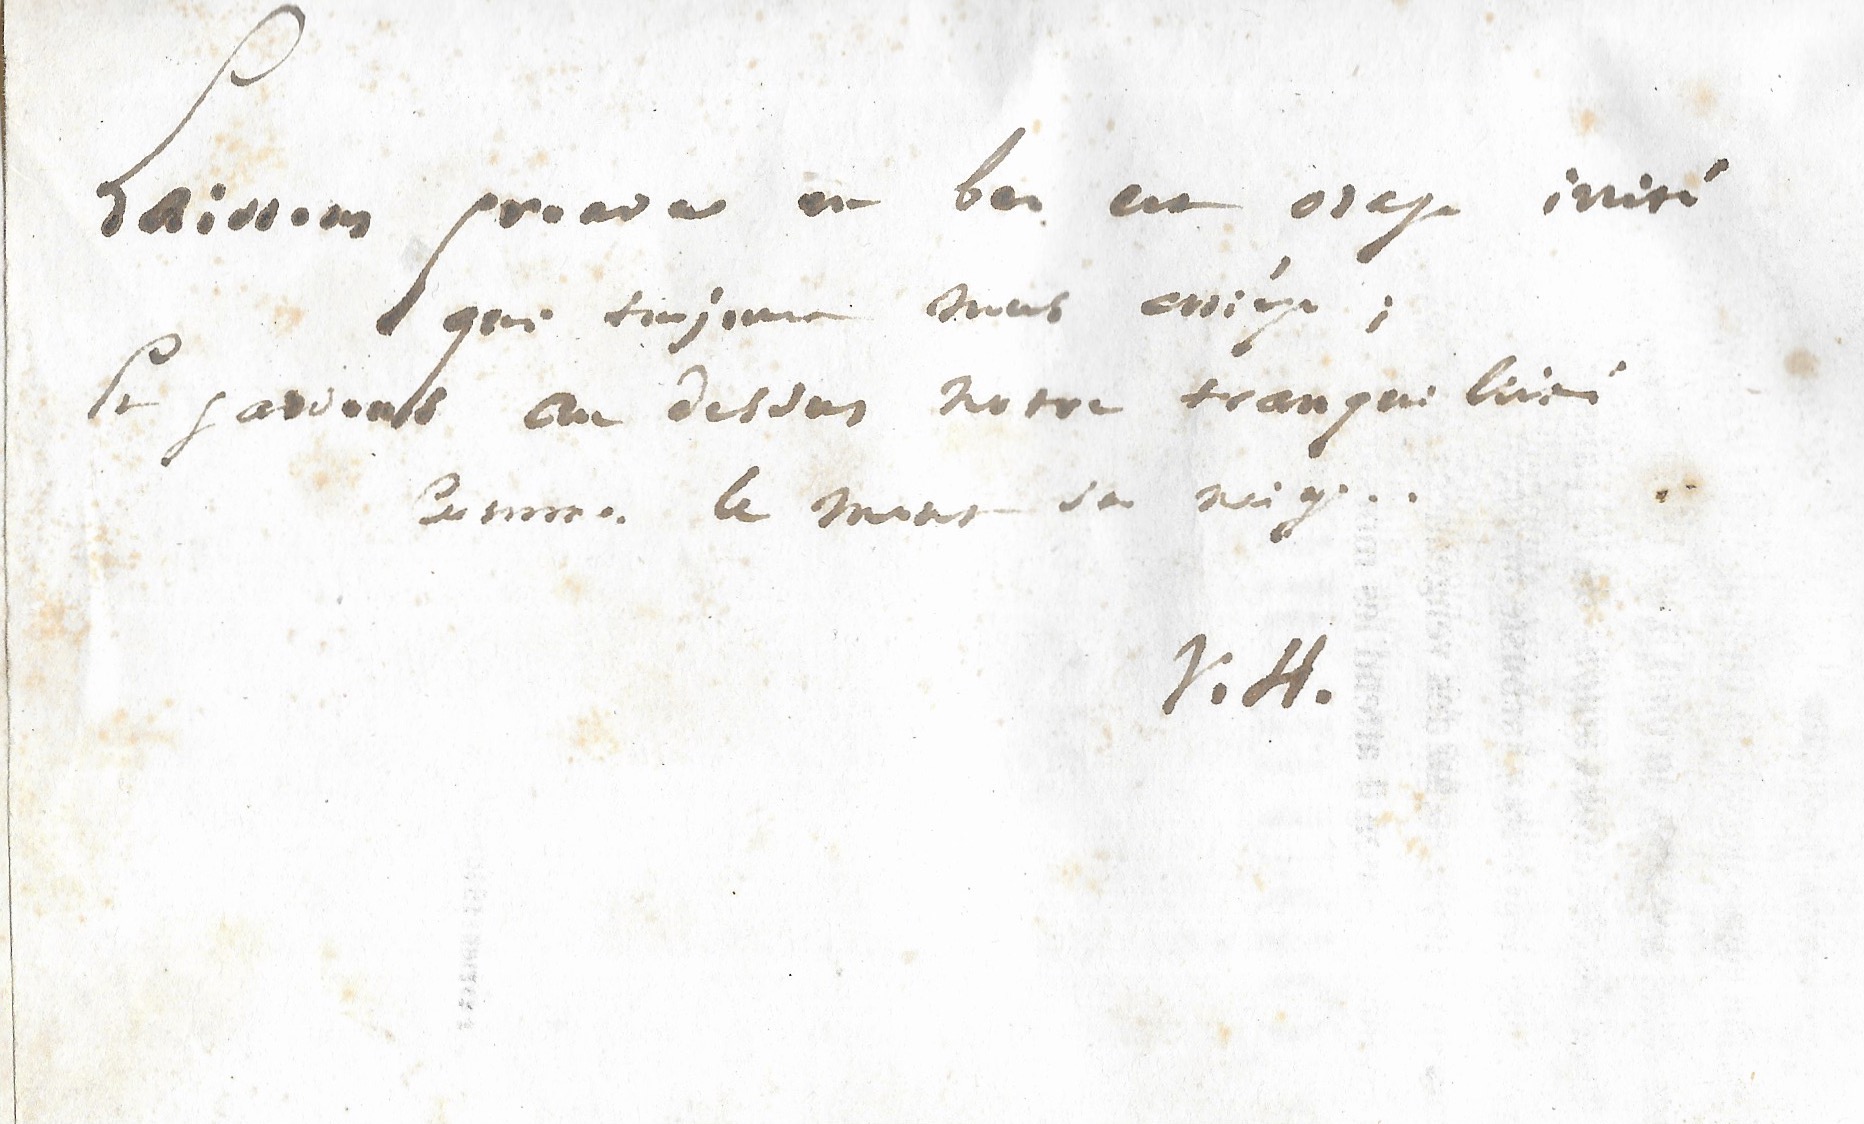 Laissons gronder en bas cet orage irrité
qui toujours nous assiége ;
Et gardons au dessus notre tranquillité
Comme le mont sa neige..
V.H.